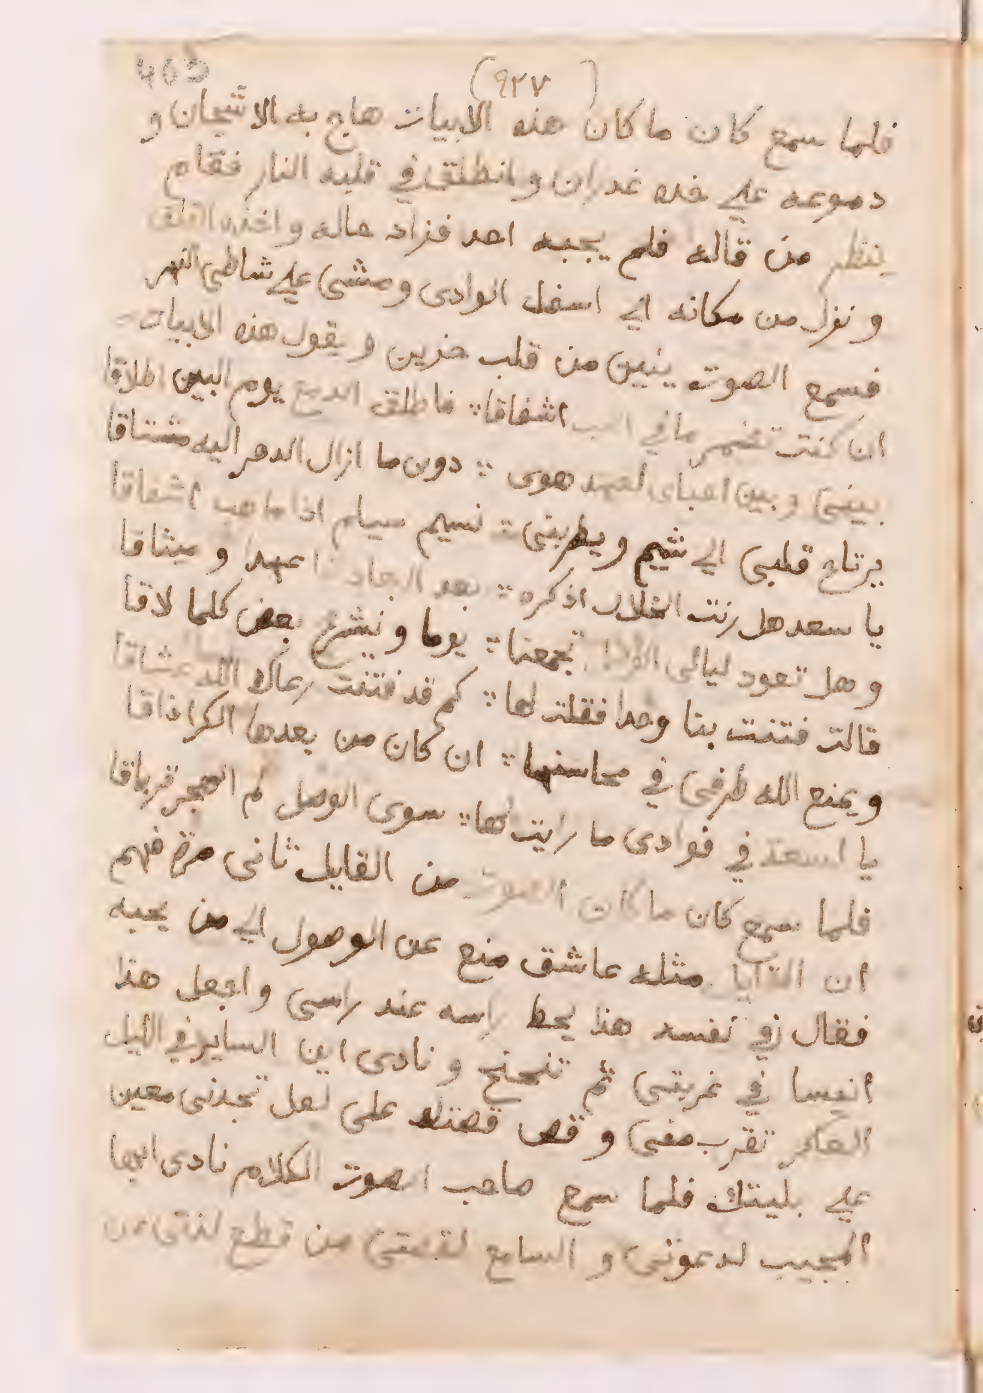 403
(٩٢٧)
فلما سمع كان ما كان هذه الابيات هاج به الاشجان و
دموعه علي خده غدران وانطلق في قلبه النار فقام
ينظر من قاله فلم يجبه احد فزاد حاله واخذه القلق
و نزل من مكانه الي اسفل الوادى ومشى علي شاطى النهر
فسمع الصوت ينين من قلب حزين و يقول هذه الابيات
ان كنت تضمر ما في الحب اشفاقا ؞ فاطلق الدمع يوم البين اطلاقا
بينى و بين احباى لعهد هوى ؞ دوين ما ازال الدهر اليه مشتاقا
يرتاح قلبى الي شيم ويطربنى ؞ نسيم سيام اذا ما هب اشفاقا
يا سعد هل رنت الخلال اذكره ؞ بعد البعاد لنا عهدا و ميثاقا
و هل تعود ليالى تجمعنا ؞ يوما و نشرح بعض كلما لاقا
قالت فتنت بنا وجدا فقلت لها ؞ كم قد فتنت رعاك الله عشاقا
و يمنع الله طرفى في محاسنها ؞ ان كان من بعدها الكرا ذاقا
يا لسعة في فوادى ما رايت لها ؞ سوى الوصل ثم الهجر ترياقا
فلما سمع كان ما كان الصوت من القايل ثانى مرة فهم
ان القايل مثله عاشق منع عن الوصول الي من يحبه
فقال في نفسه هذا يحط راسه عند راسى واجعل هذا
انيسا في غربتى ثم تنحنح و نادى اين الساير في الليل
العاكر تقرب منى و قص قصتك على لعل تجدنى معين
علي بليتك فلما سمع صاحب الصوت الكلام نادى ايها
المجيب لدعوتى و السامع لقصتى من